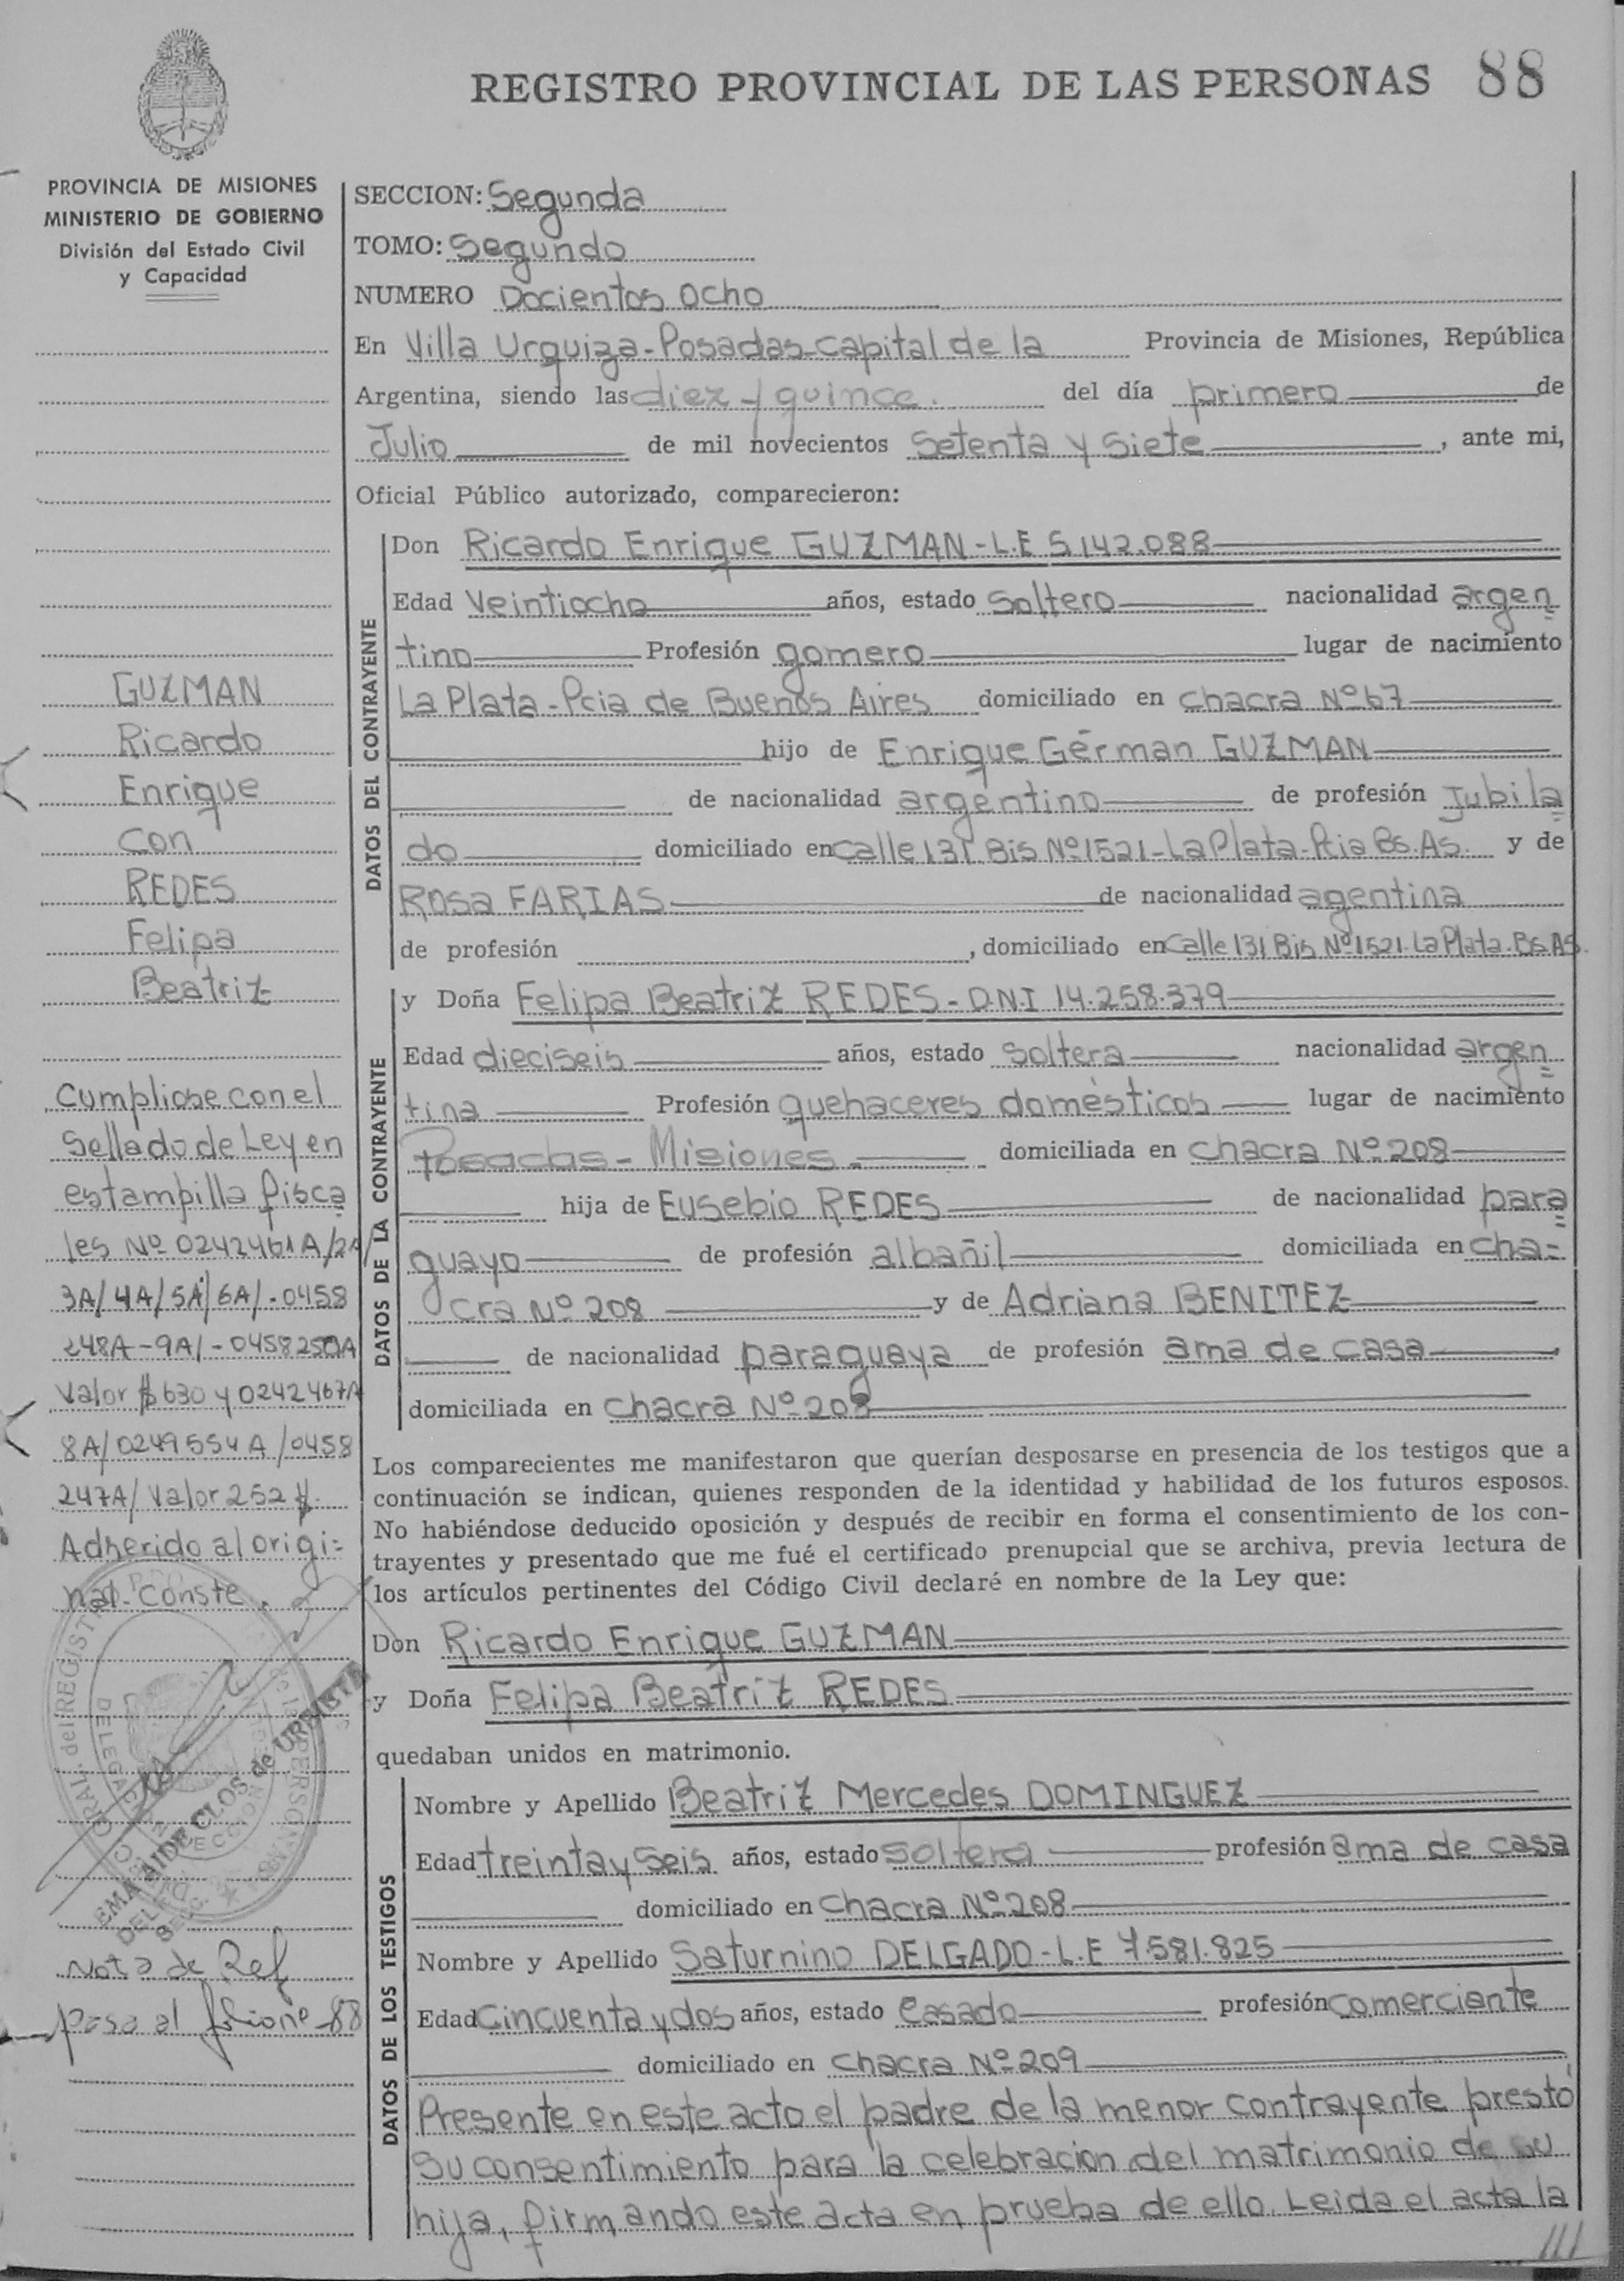 REGISTRO PROVINCIAL DE LAS PERSONAS 88
PROVINCIA DE MISIONES
MINISTERIO DE GOBIERNO
División del Estado Civil
y Capacidad
SECCION: Segunda
TOMO: Segundo
NUMERO Docientos Ocho
En Villa Urquiza-Posadas-Capital de la Provincia de Misiones, República
Argentina, siendo las diez y quince. del día primero de
Julio de mil novecientos Setenta y Siete, ante mi,
Oficial Público autorizado, comparecieron:
DATOS DEL CONTRAYENTE
Don Ricardo Enrique GUZMAN-L.E 5.142.088
Edad Veintiocho años, estado Soltero nacionalidad argen=
tino Profesión gomero lugar de nacimiento
La Plata-Pcia de Buenos Aires domiciliado en Chacra Nº 67
hijo de Enrique Gérman GUZMAN
de nacionalidad argentino de profesión Jubila=
do domiciliado en Calle 131 Bis Nº 1521-La Plata-Pcia Bs.As. y de
Rosa FARIAS de nacionalidad agentina
de profesión , domiciliado en Calle 131 Bis Nº 1521 La Plata. Bs.As.
DATOS DE LA CONTRAYENTE
y Doña Felipa Beatriz REDES-D.N.I 14.258.379
Edad dieciseis años, estado Soltera nacionalidad argen=
tina Profesión quehaceres domésticos lugar de nacimiento
Posadas-Misiones- domiciliada en Chacra Nº 208
hija de Eusebio REDES de nacionalidad para=
guayo de profesión albañil domiciliada en Cha=
cra Nº 208 y de Adriana BENITEZ
de nacionalidad paraguaya de profesión ama de casa,
domiciliada en Chacra Nº 208
Los comparecientes me manifestaron que querían desposarse en presencia de los testigos que a
continuación se indican, quienes responden de la identidad y habilidad de los futuros esposos.
No habiéndose deducido oposición y después de recibir en forma el consentimiento de los con-
trayentes y presentado que me fué el certificado prenupcial que se archiva, previa lectura de
los artículos pertinentes del Código Civil declaré en nombre de la Ley que:
Don Ricardo Enrique GUZMAN
y Doña Felipa Beatriz REDES
quedaban unidos en matrimonio.
DATOS DE LOS TESTIGOS
Nombre y Apellido Beatriz Mercedes DOMINGUEZ
Edad treinta y Seis años, estado Soltera profesión ama de casa
domiciliado en Chacra Nº 208
Nombre y Apellido Saturnino DELGADO-L.E 7.581.825
Edad Cincuenta y dos años, estado Casado profesión Comerciante
domiciliado en Chacra Nº 209
Presente en este acto el padre de la menor contrayente prestó
su consentimiento para la celebración del matrimonio de su
hija, firmando este acta en prueba de ello. Leida el acta la
///
GUZMAN
Ricardo
Enrique
Con
REDES
Felipa
Beatriz
Cumpliose con el
Sellado de Ley en
estampilla fisca
les Nº 0242461A/2A/
3A/4A/5A/6A/-0458
248A-9A/-0458250A
Valor $ 630 y 0242467A
8A/0249554A/0458
247A/Valor 252 $.
Adherido al origi=
nal. Conste.
EMA AIDE CLOS de URBISTA
Nota de Ref
pasa al 88